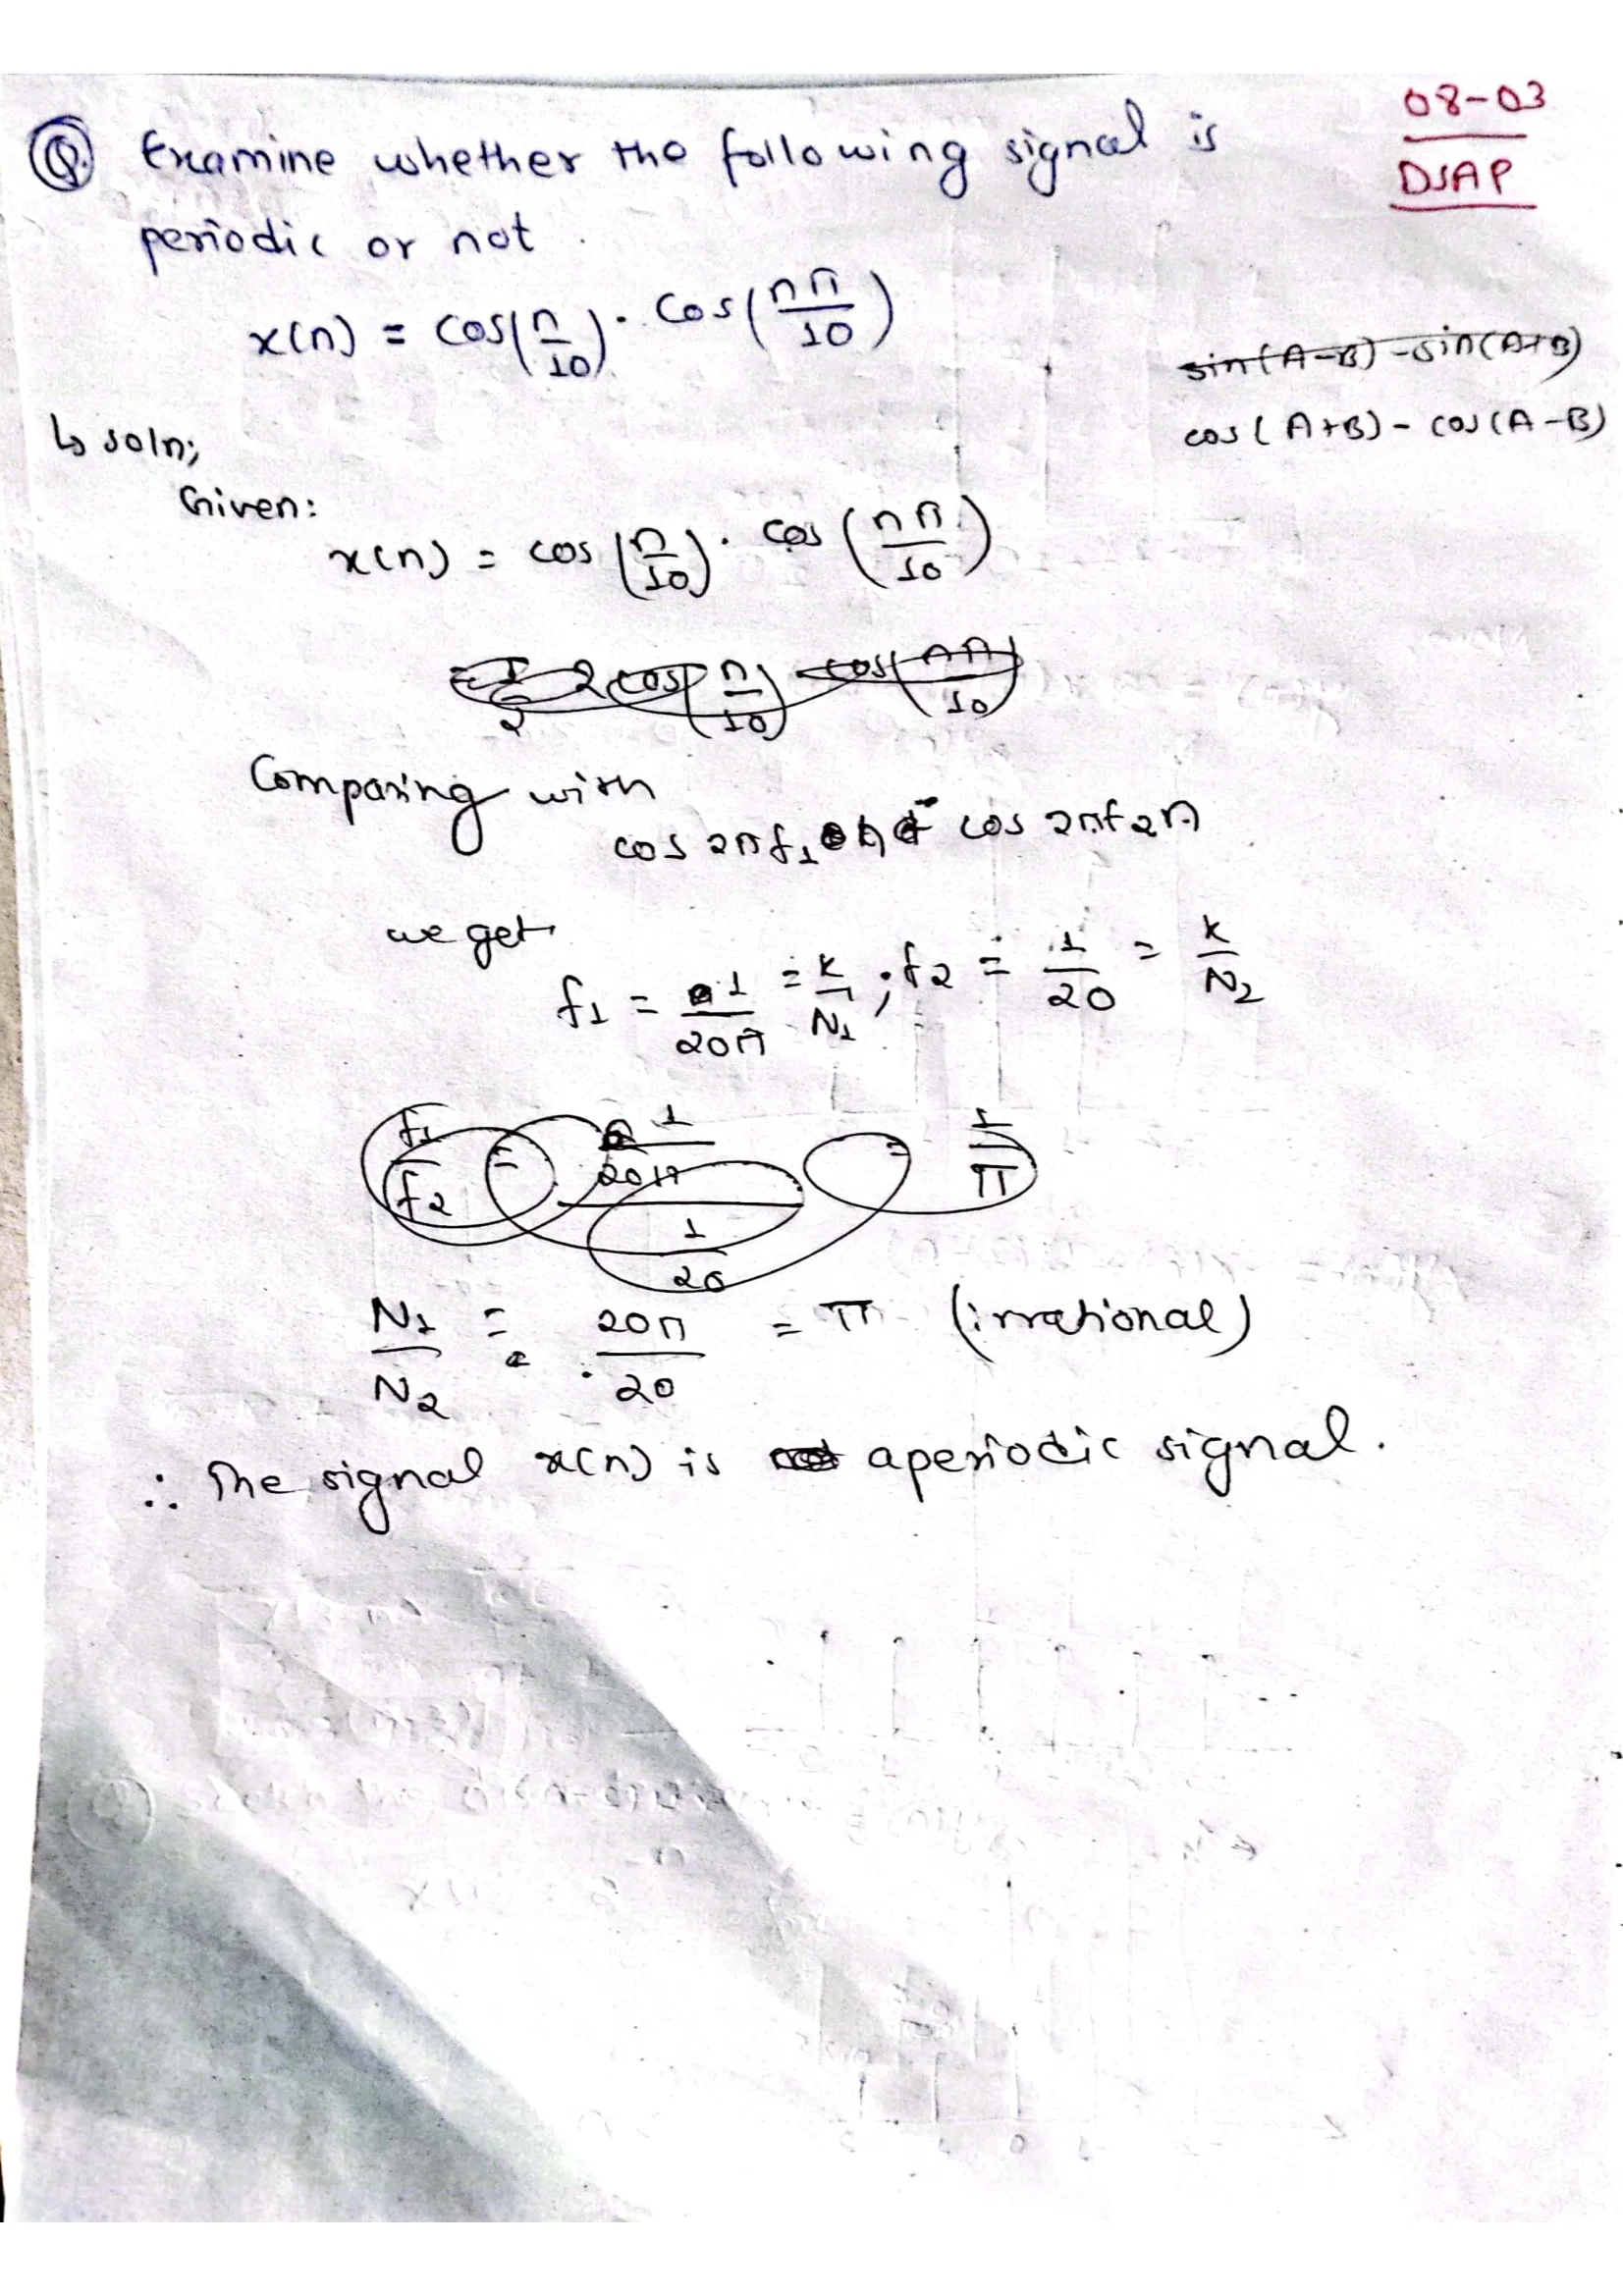 08-03
DSAP
Q. Examine whether the following signal is
periodic or not.
x(n) = cos(n/10). cos(nπ/10)
sin(A-B) - sin(A+B)
cos(A+B) - cos(A-B)
↳ soln;
Given:
x(n) = cos(n/10). cos(nπ/10)
= 1/2 2cos(n/10) cos(nπ/10)
Comparing with
cos 2πf1n cos 2πf2n
we get
f1 = 1/20π = k/N1 ; f2 = 1/20 = k/N2
f1/f2 = (1/20π)/(1/20) = 1/π
N1/N2 = 20π/20 = π (irrational)
∴ The signal x(n) is aperiodic signal.